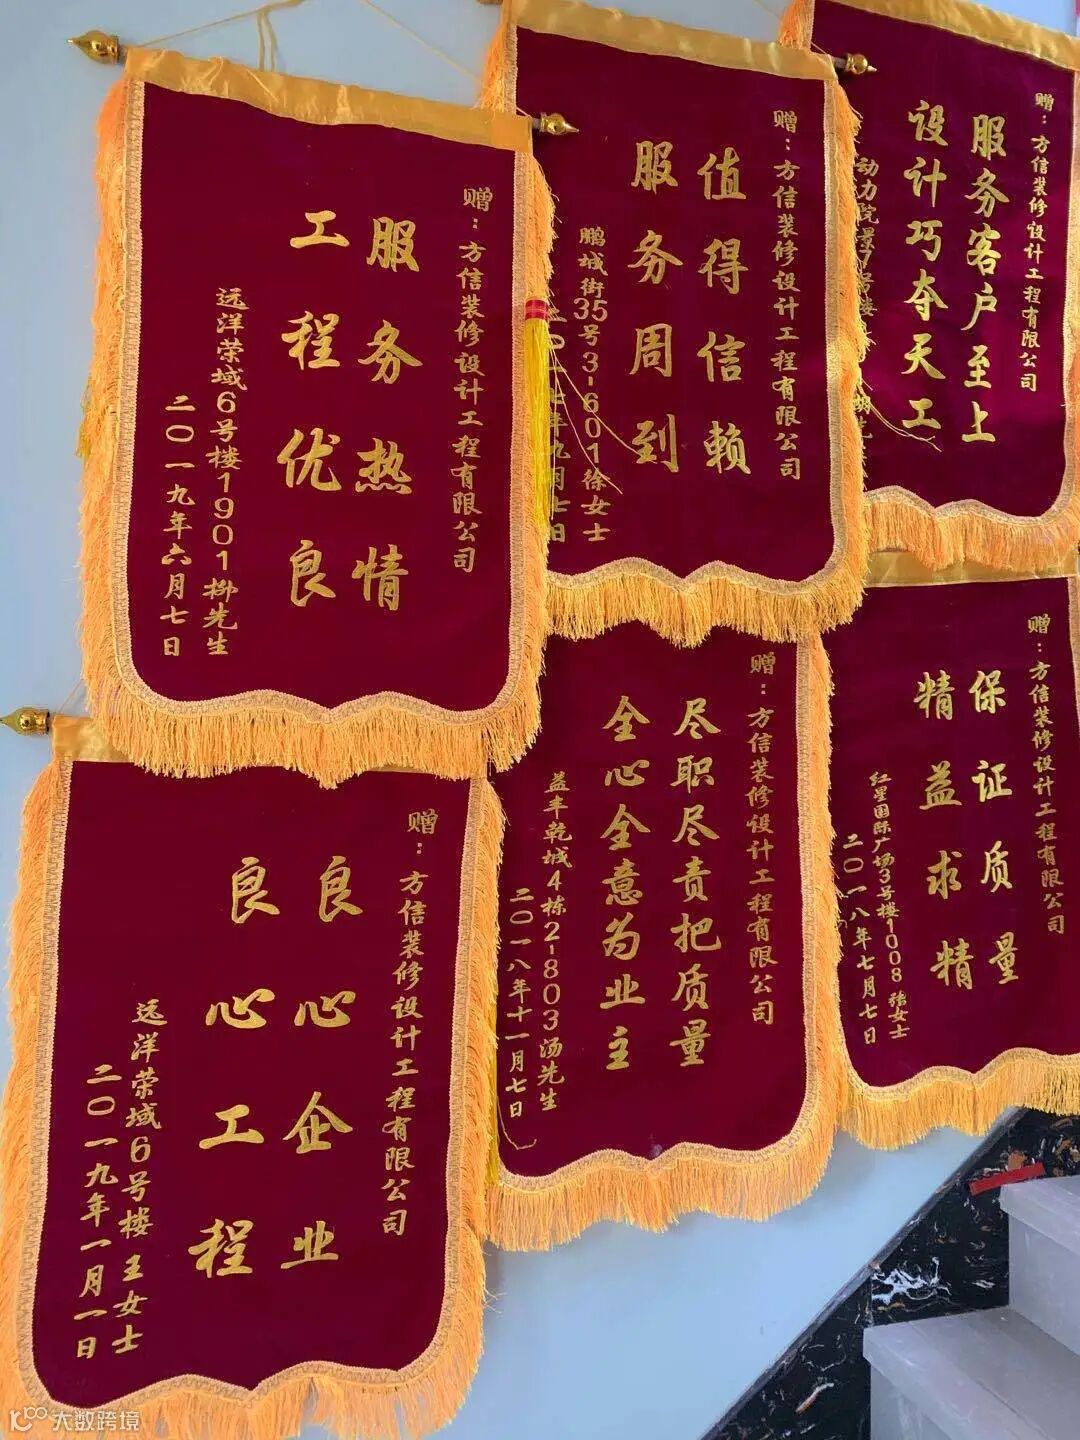 赠：方信装修设计工程有限公司
服务热情
工程优良
远洋荣域6号楼1901柳先生
二〇一九年六月七日
赠：方信装修设计工程有限公司
值得信赖
服务周到
鹏城街35号3-601徐女士
赠：方信装修设计工程有限公司
服务客户至上
设计巧夺天工
动力院景7号楼
赠：方信装修设计工程有限公司
良心企业
良心工程
远洋荣域6号楼王女士
二〇一九年一月一日
赠：方信装修设计工程有限公司
尽职尽责把质量
全心全意为业主
益丰乾城4栋2-803汤先生
二〇一八年十一月七日
赠：方信装修设计工程有限公司
保证质量
精益求精
红星国际广场3号楼1008张女士
二〇一八年七月七日
大数跨境